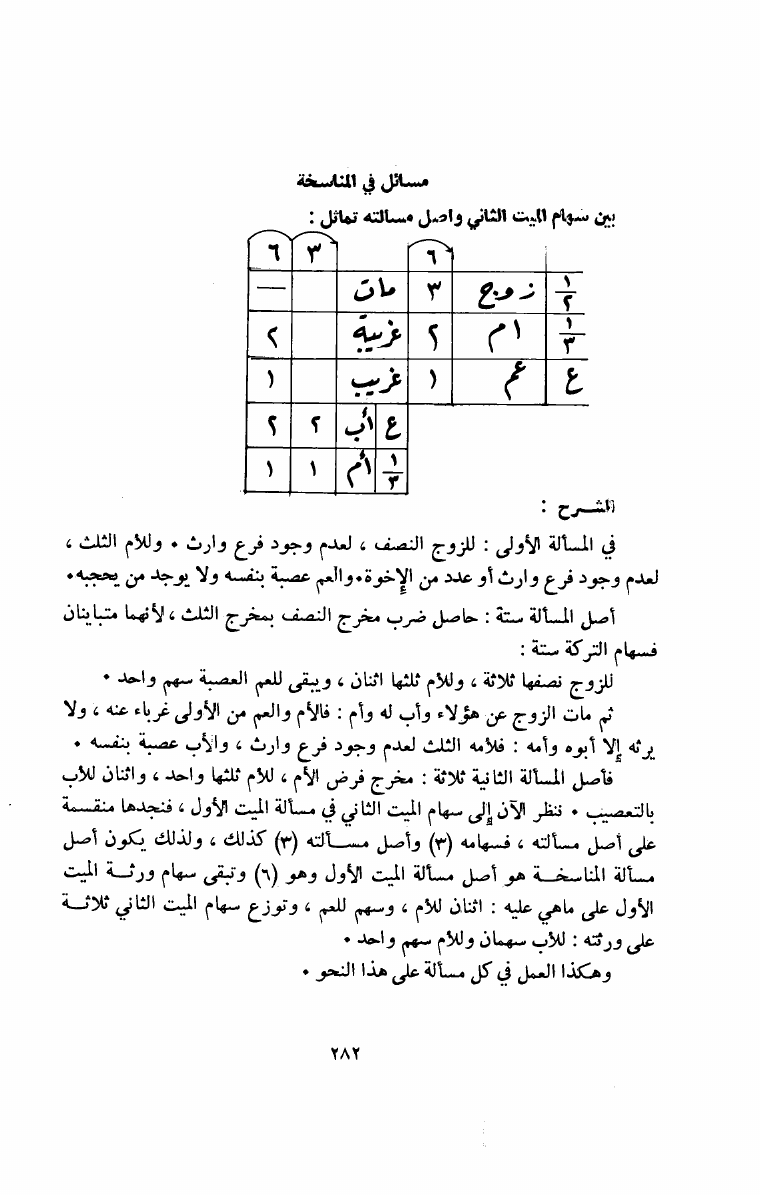 مسائل في المناسخة
بين سهام الميت الثاني واصل مسالته تماثل :
٦ ٣ ٦
١/٢ زوج ٣ مات —
١/٣ ام ٢ غريبة ٢
ع عم ١ غريب ١
ع أب ٢ ٢
١/٣ أم ١ ١
الشرح :
في المسألة الأولى : للزوج النصف ، لعدم وجود فرع وارث • وللأم الثلث ،
لعدم وجود فرع وارث أو عدد من الإخوة•والعم عصبة بنفسه ولا يوجد من يحجبه•
أصل المسألة ستة : حاصل ضرب مخرج النصف بمخرج الثلث ، لأنهما متباينان
فسهام التركة ستة :
للزوج نصفها ثلاثة ، وللأم ثلثها اثنان ، ويبقى للعم العصبة سهم واحد •
ثم مات الزوج عن هؤلاء وأب له وأم : فالأم والعم من الأولى غرباء عنه ، ولا
يرثه إلا أبوه وأمه : فلأمه الثلث لعدم وجود فرع وارث ، والأب عصبة بنفسه •
فأصل المسألة الثانية ثلاثة : مخرج فرض الأم ، للأم ثلثها واحد ، واثنان للأب
بالتعصيب • ننظر الآن إلى سهام الميت الثاني في مسألة الميت الأول ، فنجدها منقسمة
على أصل مسألته ، فسهامه (٣) وأصل مسألته (٣) كذلك ، ولذلك يكون أصل
مسألة المناسخة هو أصل مسألة الميت الأول وهو (٦) وتبقى سهام ورثة الميت
الأول على ماهي عليه : اثنان للأم ، وسهم للعم ، وتوزع سهام الميت الثاني ثلاثة
على ورثته : للأب سهمان وللأم سهم واحد •
وهكذا العمل في كل مسألة على هذا النحو •
٢٨٢